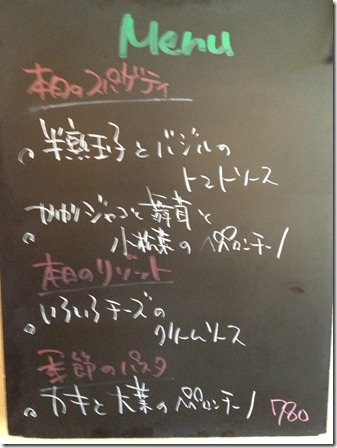 Menu
本日のスパゲティ
半熟玉子とバジルの
トマトソース
カリカリジャコと舞茸と
小松菜のペペロンチーノ
本日のリゾット
いろいろチーズの
クリームソース
季節のパスタ
カキと大葉のペペロンチーノ 780